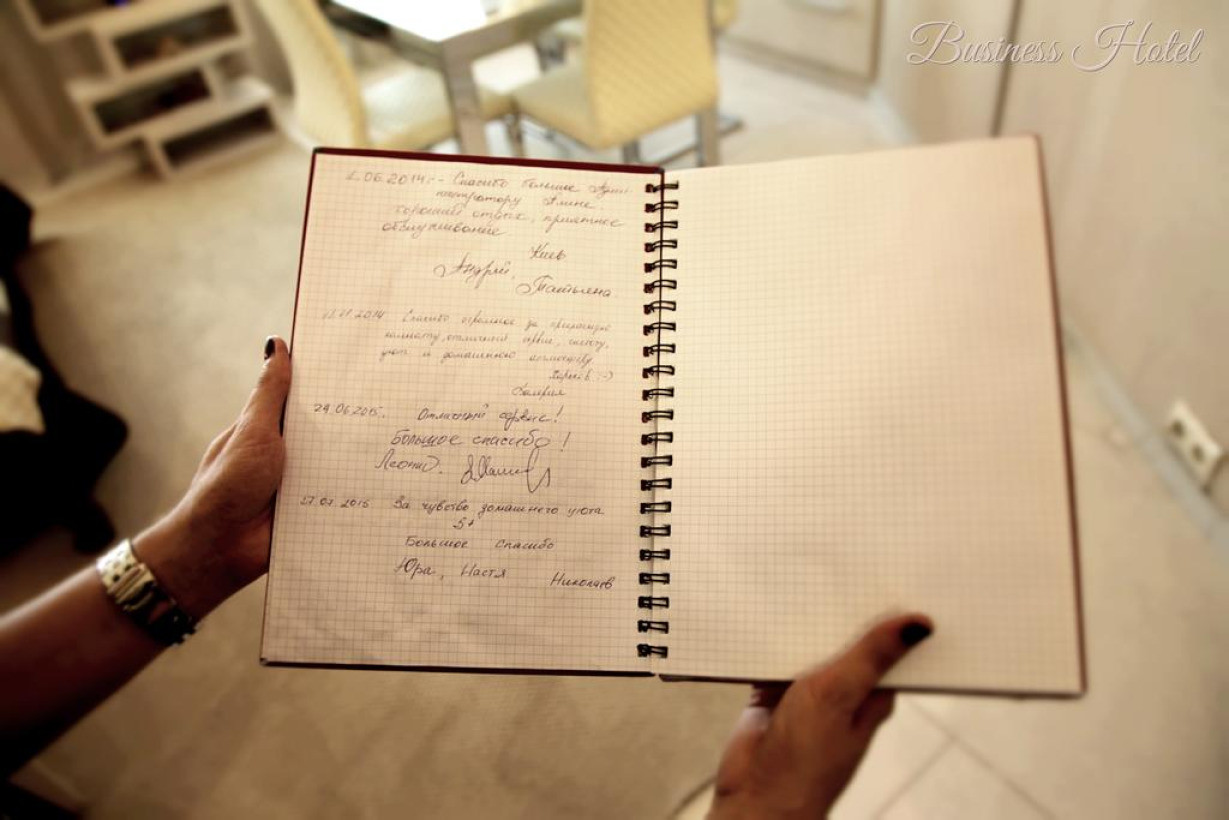 Business Hotel
.06.2014г.- Спасибо большое Адми-
нистратору Алине.
Хороший отдых, приятное
обслуживание
Киев
Андрей,
Татьяна.
2014 Спасибо огромное за прекрасную
комнату, отличный сервис, чистоту,
уют и домашнюю атмосферу.
Харьков :-)
Валерия
29.06.2015г. Отличный сервис!
Большое спасибо!
Леонид.
27.07.2015 За чувство домашнего уюта
5+
Большое спасибо
Юра, Настя Николаев